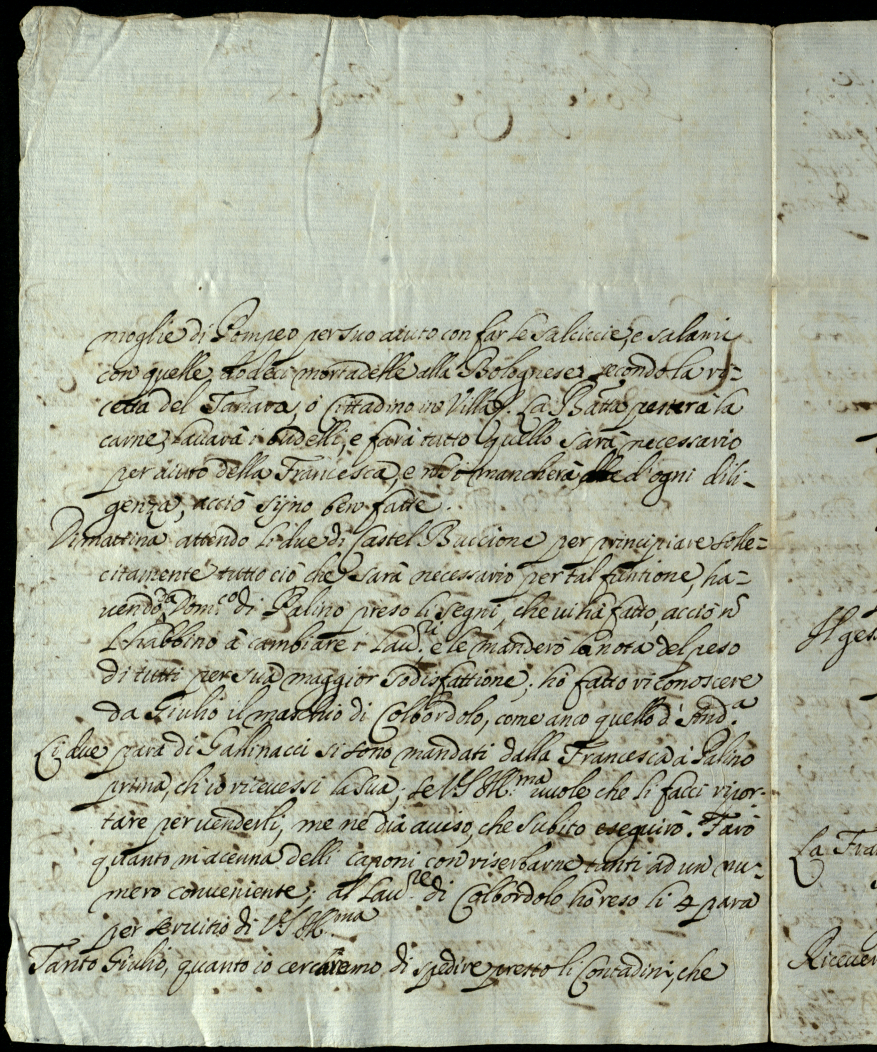 moglie di Pompeo per suo aiuto con far le salciccie, e salami
con quelle dodeci mortadelle alla Bolognese, secondo la ri=
cetta del Tanara, ò Cittadino in Villa. La Batta pesterà la
carne, lavarà i budelli, e farà tutto quello sarà necessario
per aiuto della Francesca, e mancherà d'ogni dili=
genza, acciò sijno ben fatte.
Dimattina attendo li due di Castel Buccione per principiare solle=
citamente tutto ciò che sarà necessario per tal funtione, ha=
vendo Dom.co di Palino preso li segni, che vi hà fatto, acciò ñ
l'habbino à cambiare i Lau.ri, e le manderò la nota del peso
di tutti per sua maggior sodisfattione; hò fatto riconoscere
da Giulio il maschio di Colbordolo, come anco quello d'And.a
Li due para di Gallinacci si sono mandati dalla Francesca à Palino
prima, ch'io ricevessi la sua; se V.S. Ill.ma vuole che li facci ripor=
tare per venderli, me ne dia aviso, che subito eseguirò. Farò
quanto m'acenna delli caponi con riserbarne tanti ad un nu=
mero conveniente; al Lau.re di Colbordolo hò reso li 4 para
per servitio di V.S. Ill.ma
Tanto Giulio, quanto io cercaremo di spedire presto li Contadini, che
Il ges
La Fra
Ricever